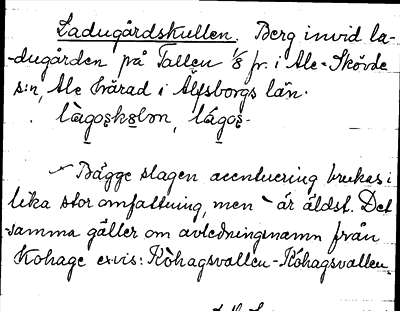 Ladugårdskullen. Berg invid la-
-dugården på Tallen 1/8 fr. i Ale-Skövde
s:n, Ale härad i Älfsborgs län.
làgoskolon, lágos-
Bägge slagen accentuering brukas i
lika stor omfattning, men ` är äldst. Det
samma gäller om avledningsnamn från
Kohage ex.vis: Kòhagsvallen - Kóhagsvallen.